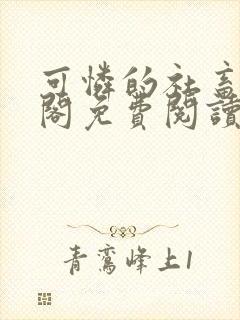 可憐的社畜
閣免費閱讀
青鸞峰上1